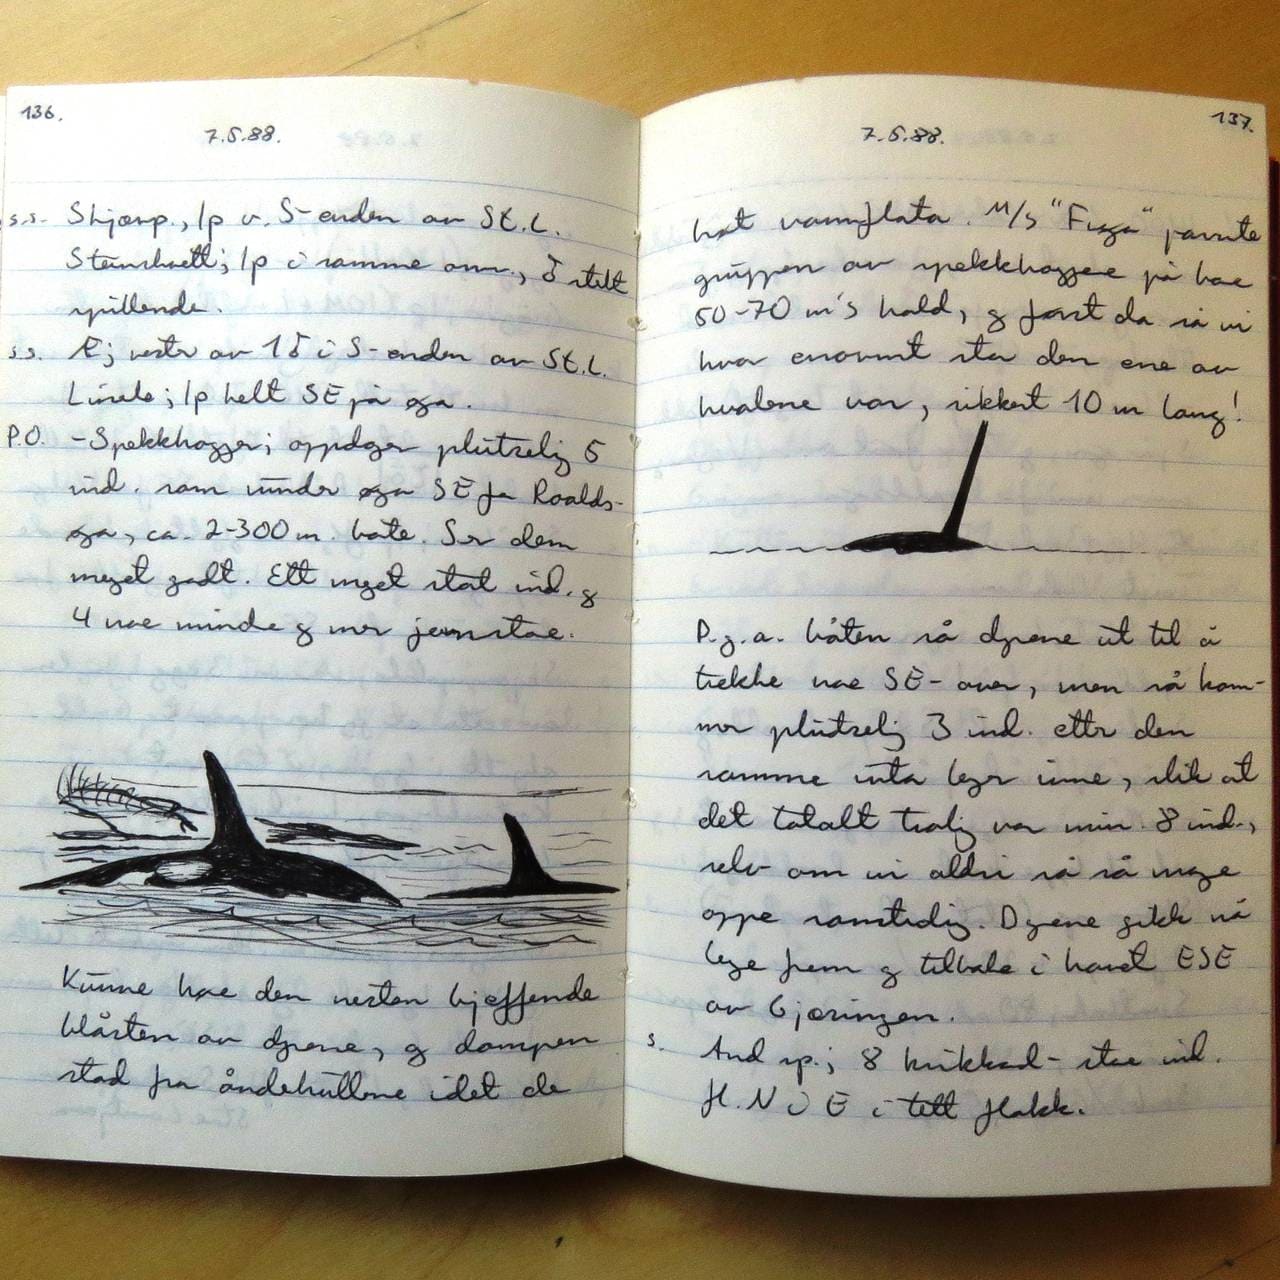 136.
7.5.88.
s.s. Skjærp., 1p v. S-enden av St.L.
Steinskvett; 1p i samme omr., ♂ stilt
spillende.
s.s. Ej vester av 1♂ i S-enden av St.L.
Lirela; 1p helt SE på øya.
P.O. -Spekkhogger; oppdager plutselig 5
ind. som runder øya SE for Roalds-
øya, ca. 2-300 m. borte. Ser dem
meget godt. Ett meget stort ind. og
4 noe mindre og mer jevnstore.
Kunne høre den nesten bjeffende
blåsten av dyrene, og dampen
stod fra åndehullene idet de
137.
7.5.88.
brøt vannflata. M/S "Frøya" passerte
gruppen av spekkhoggere på bare
50-70 m's hold, og først da så vi
hvor enormt stor den ene av
hvalene var, sikkert 10 m lang!
P.g.a. båten så dyrene ut til å
trekke noe SE-over, men så kom-
mer plutselig 3 ind. etter den
samme ruta lenger inne, slik at
det totalt trolig var min. 8 ind.,
selv om vi aldri så så mange
oppe samtidig. Dyrene gikk nå
lenge frem og tilbake i havet ESE
av Gjæringen.
s. And sp.; 8 krikkand-store ind.
fl. N i E i tett flokk.